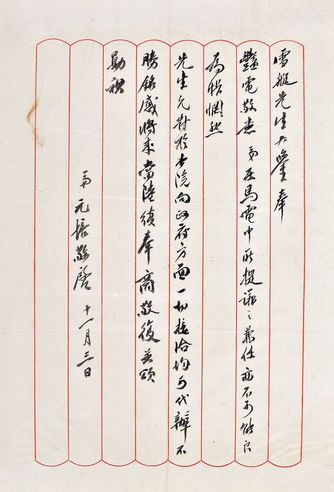 雪艇先生大鑒奉
艷電敬悉弟在馬電中所提議之兼任亦不可能良
為悵惘然
先生允對於本院向政府方面一切接洽均可代辦不
勝銘感將來當陸續奉商敬復並頌
勛祺
弟元任敬啓十一月三日